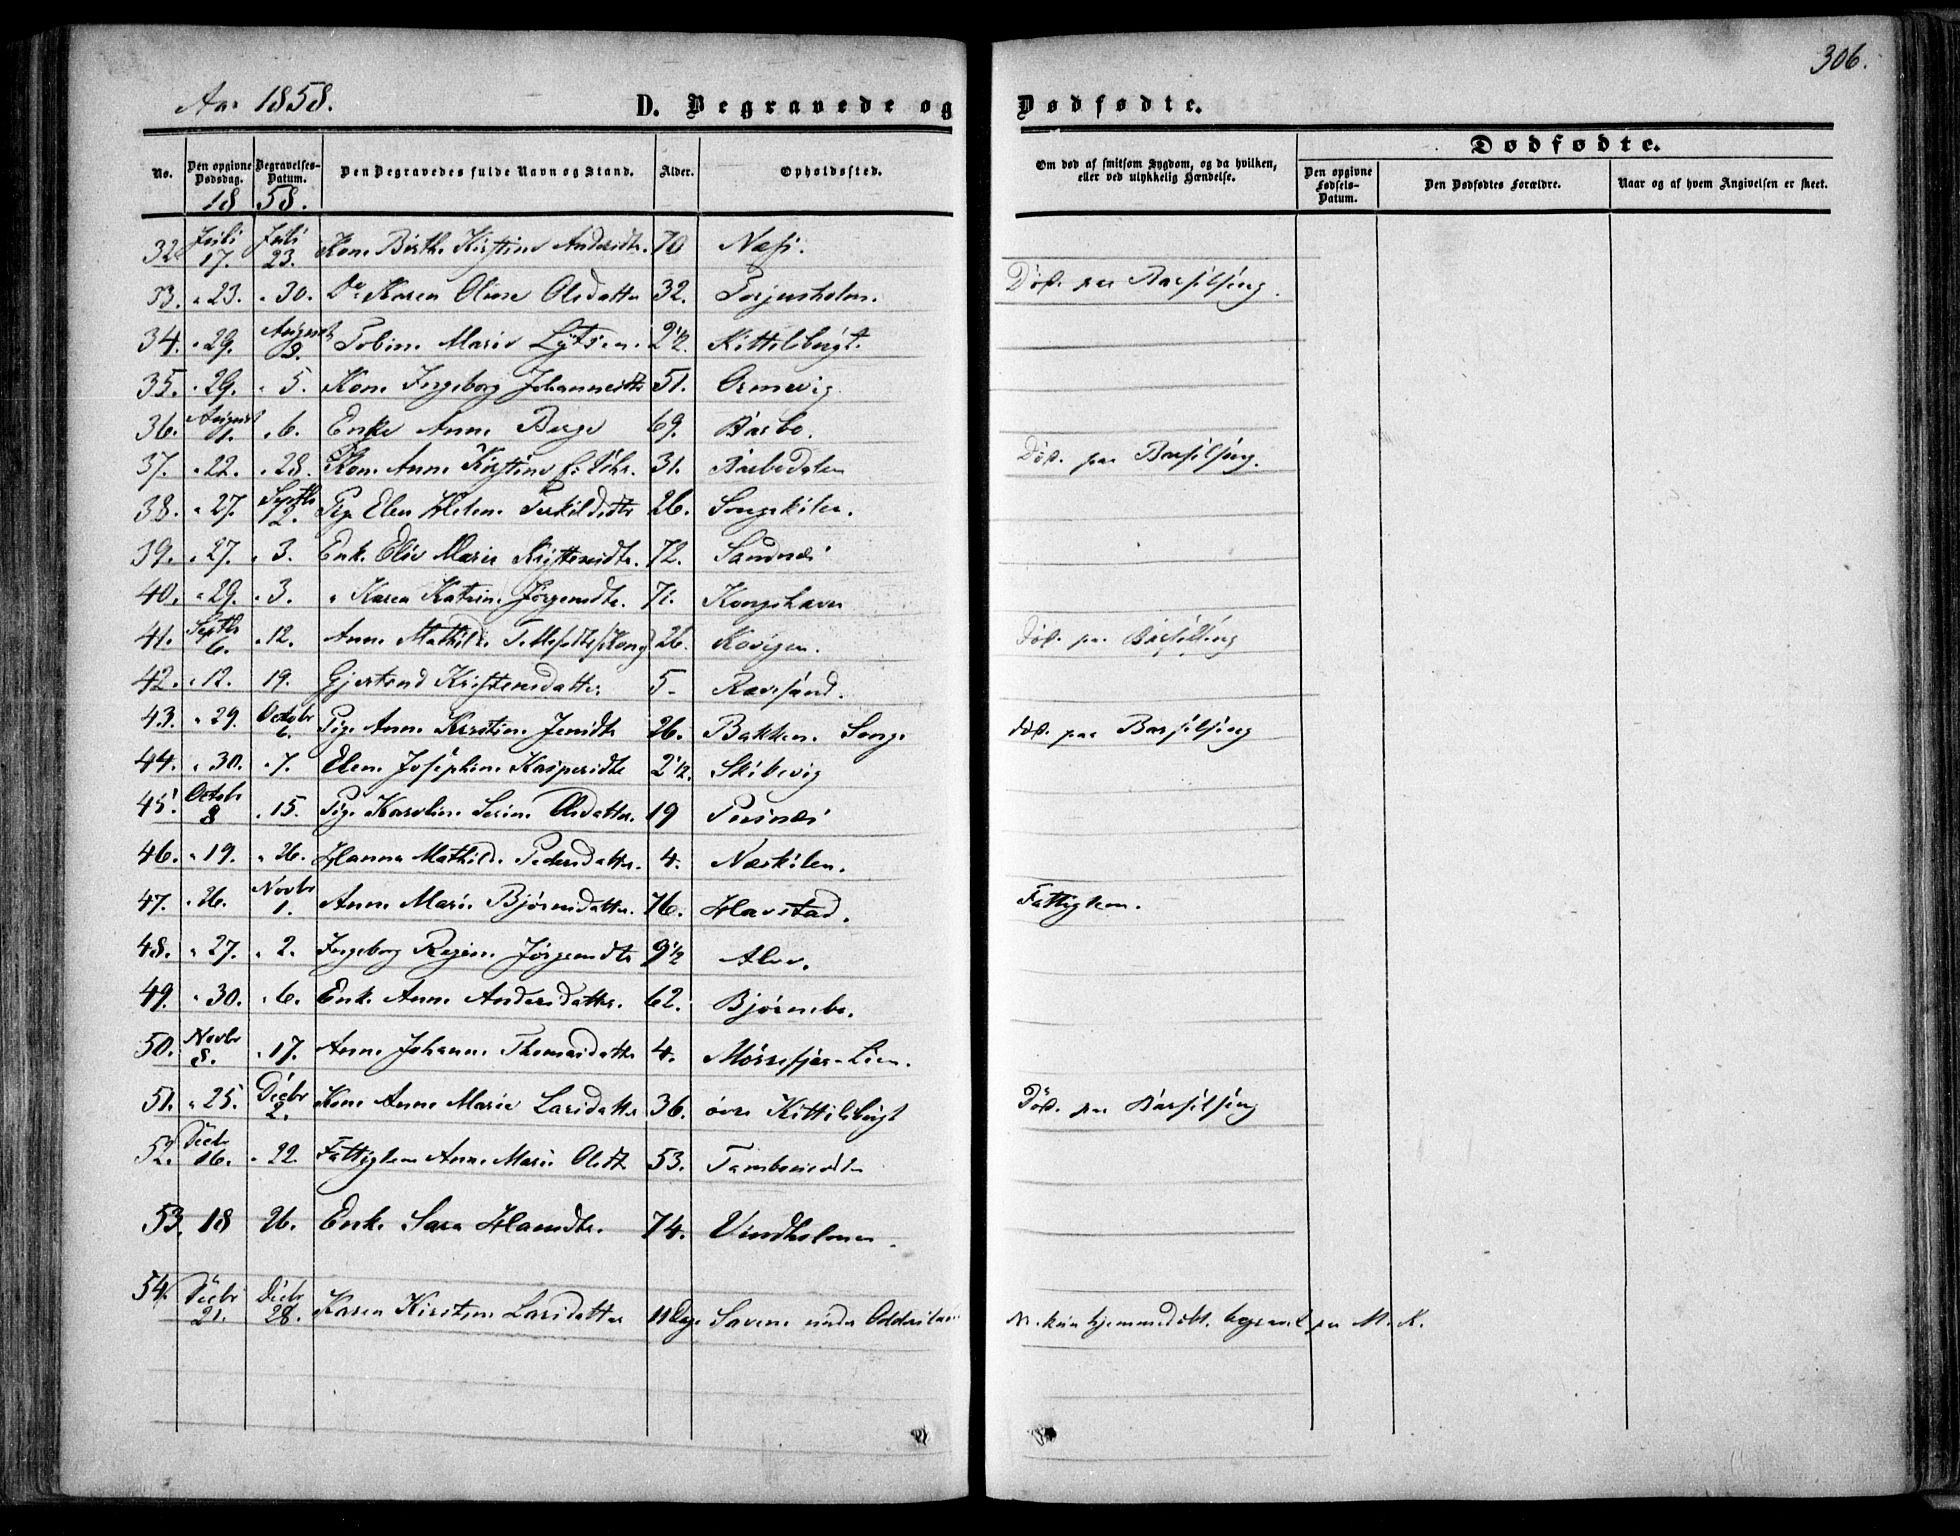 306.
Aar 1858.
D. Begravede og Dødfødte.
No. Den opgivne Dødsdag. Begravelses-Datum. Den Begravedes fulde Navn og Stand. Alder. Opholdssted. Om død af smitsom Sygdom, og da hvilken, eller ved ulykkelig Hændelse. Dødfødte. Den opgivne Fødsels-Datum. Den Dødfødtes Forældre. Naar og af hvem Angivelsen er skeet.
18 58.
32 Juli 17. Juli 23. Kone Birthe Kirstine Andersdtr. 70 Næs.
33. " 23. " 30. Do Karen Oline Olsdatter 32. Torjusholm. Død paa Barselseng.
34. " 29. August 3. Tobine Marie 2 1/2. Kittelsbugt.
35. " 29. " 5. Kone Ingeborg Johannesdtr 51. Omevig.
36. August 1. " 6. Enke Anne Berge 69. Barbo.
37. " 22. " 28. Kone Anne Kirstine 31. Barbodalen Død paa Barselseng.
38. " 27. Septbr 2. Pige Elen Helene Terkildsdtr 26. Songekilen.
39. " 27. " 3. Enke Marie 72. Sandnæs
40. " 29. " 3. " Karen Katrine Jørgensdtr. 71. Kongshavn
41. Septbr 6. " 12. Anne Mathilde 26. Død paa Barselseng
42. " 12. 19. Gjertine Kristensdatter 5 - Revesand.
43. " 29. Octobr 6. Pige Anne Kirstine Jensdtr 26. Bakken Songe død paa Barselseng
44. " 30. " 7. Elen Josephine Kaspersdtr 2 1/2. Skibevig
45. Octobr 8 " 15. Pige Karoline Serine Olsdatter. 19
46. " 19. " 26. Hanna Mathilde Pedersdatter. 4. Næskilen.
47. " 26. Novbr 1. Anne Marie Bjørnsdatter. 76. Havstad. Fattiglem.
48. " 27. " 2. Ingeborg Regine Jørgensdtr 9 1/2 Alve.
49. " 30. " 6. Enke Anne Andersdatter. 62. Bjørnebo.
50. Novbr 8. " 17. Anne Johanne Thomasdatter 4. Mørefjær-Lien.
51. " 25. Decbr 2. Kone Anne Marie Larsdatter 36. øvre Kittelsbugt Død paa Barselseng
52. Decbr 16. " 22 Fattiglem Anne Marie Olsdtr 53.
53. 18 26. Enke Sara Hansdtr. 74. Vindholmen.
54. Decbr 21. Decbr 28. Karen Kirstine Larsdatter 11 Dage Savene under Oddersland hjemmedøbt. begravet paa M. K.